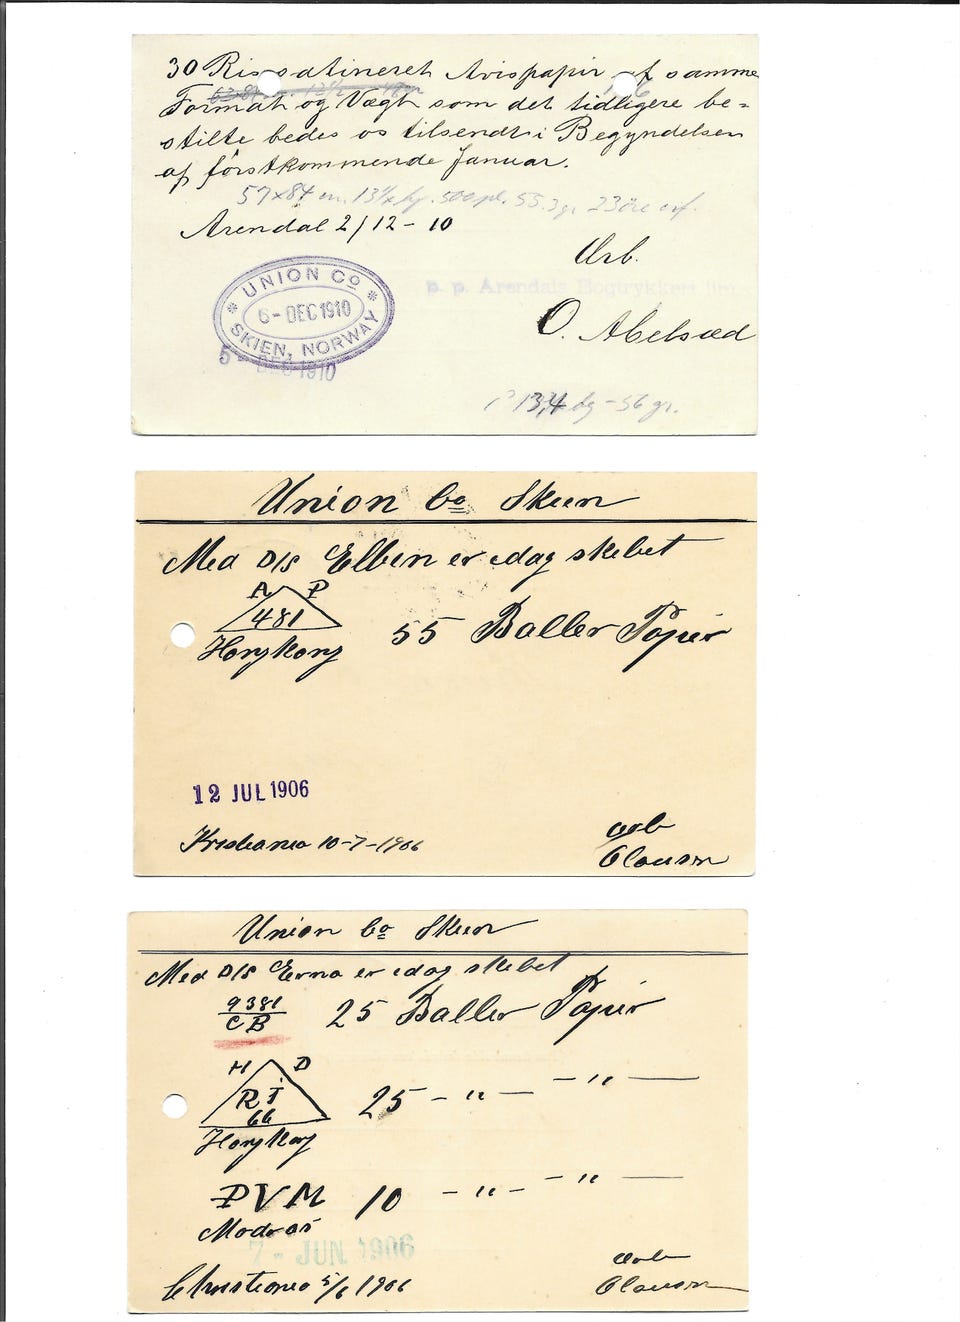 30 Ris satineret Avispapir af samme
Format og Vægt som det tidligere be=
stilte bedes os tilsendt i Begyndelsen
af førstkommende Januar.
57x84 cm. 13½ kg. 500 pl. 55.3 gr. 23 öre
Arendal 2/12-10
Ærb.
p. p. Arendals Bogtrykkeri
O. Abelsæd
UNION Co
6-DEC 1910
SKIEN, NORWAY
5 DEC 1910
13,4 kg - 56 gr.
Union Co Skien
Med D/S Elben er idag skibet
A P
481
HongKong
55 Baller Papir
12 JUL 1906
Kristiania 10-7-1906
Ærb
Clausen
Union Co Skien
Med D/S Erna er idag skibet
9381
CB
25 Baller Papir
H D
R T
66
HongKong
25 - " - - " -
PVM 10 - " - - " -
Madras
7-JUN. 1906
Christiania 5/6 1906
Ærb
Clausen